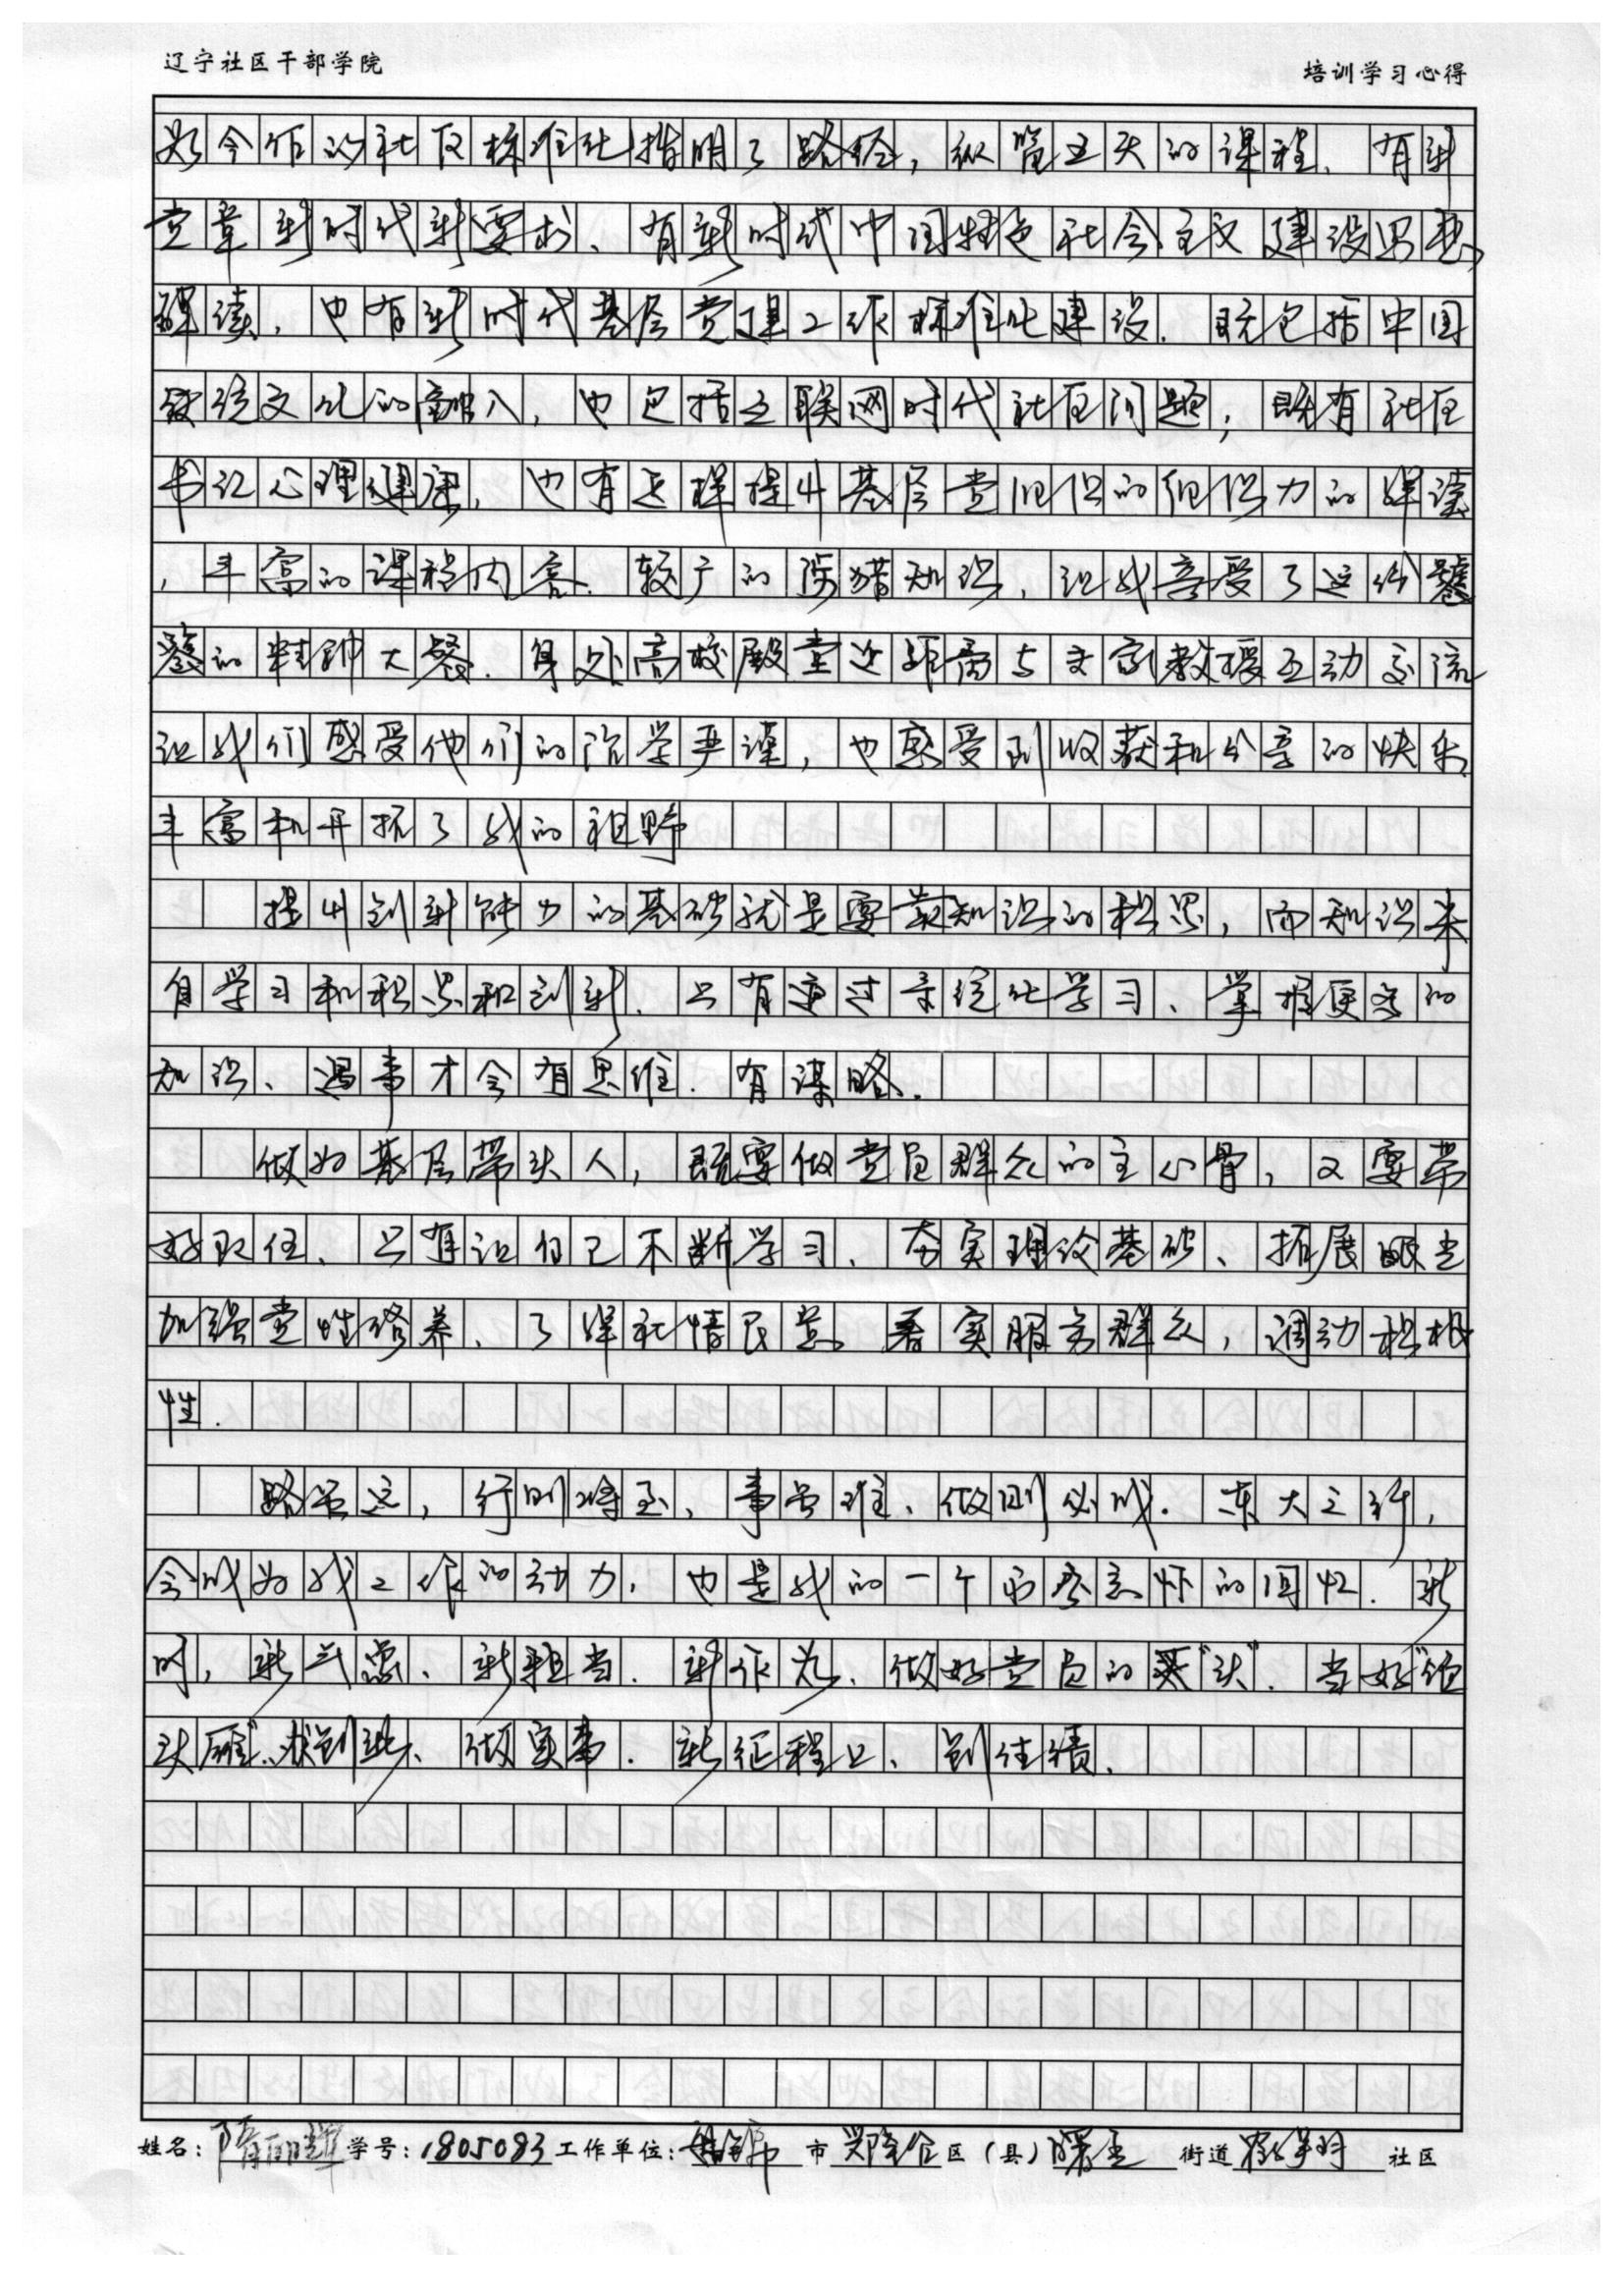 辽宁社区干部学院
培训学习心得
如今后的社区标准化指明了路径，纵览五天的课程、有新
党章新时代新要求、有新时代中国特色社会主义建设思想
解读，也有新时代基层党建工作标准化建设．既包括中国
传统文化的融入，也包括互联网时代社区问题；既有社区
书记心理健康，也有怎样提升基层党组织的组织力的解读
，丰富的课程内容、较广的涉猎知识，让我享受了这份饕
餮的精神大餐．身处高校殿堂近距离与专家教授互动交流
让我们感受他们的治学严谨，也感受到收获和分享的快乐
丰富和开拓了我的视野
提升创新能力的基础就是要靠知识的积累，而知识来
自学习和积累和创新．只有通过系统化学习、掌握更多的
知识、遇事才会有思维．有谋略．
做为基层带头人，既要做党员群众的主心骨，又要带
好队伍、只有让自己不断学习、夯实理论基础、拓展眼界
加强党性修养、了解社情民意。着实服务群众，调动积极
性．
路虽远，行则将至、事虽难、做则必成．东大之行，
会成为我工作的动力，也是我的一个忘怀的回忆．新
时，新气象、新担当．新作为、做好党员的“头”．当好“领
头雁”、求创新、做实事．新征程上、创佳绩．
姓名：隋丽辉 学号：1805083 工作单位： 市 兴隆台 区（县） 曙光 街道 社区